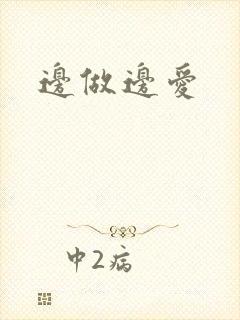 邊做邊愛
中2病